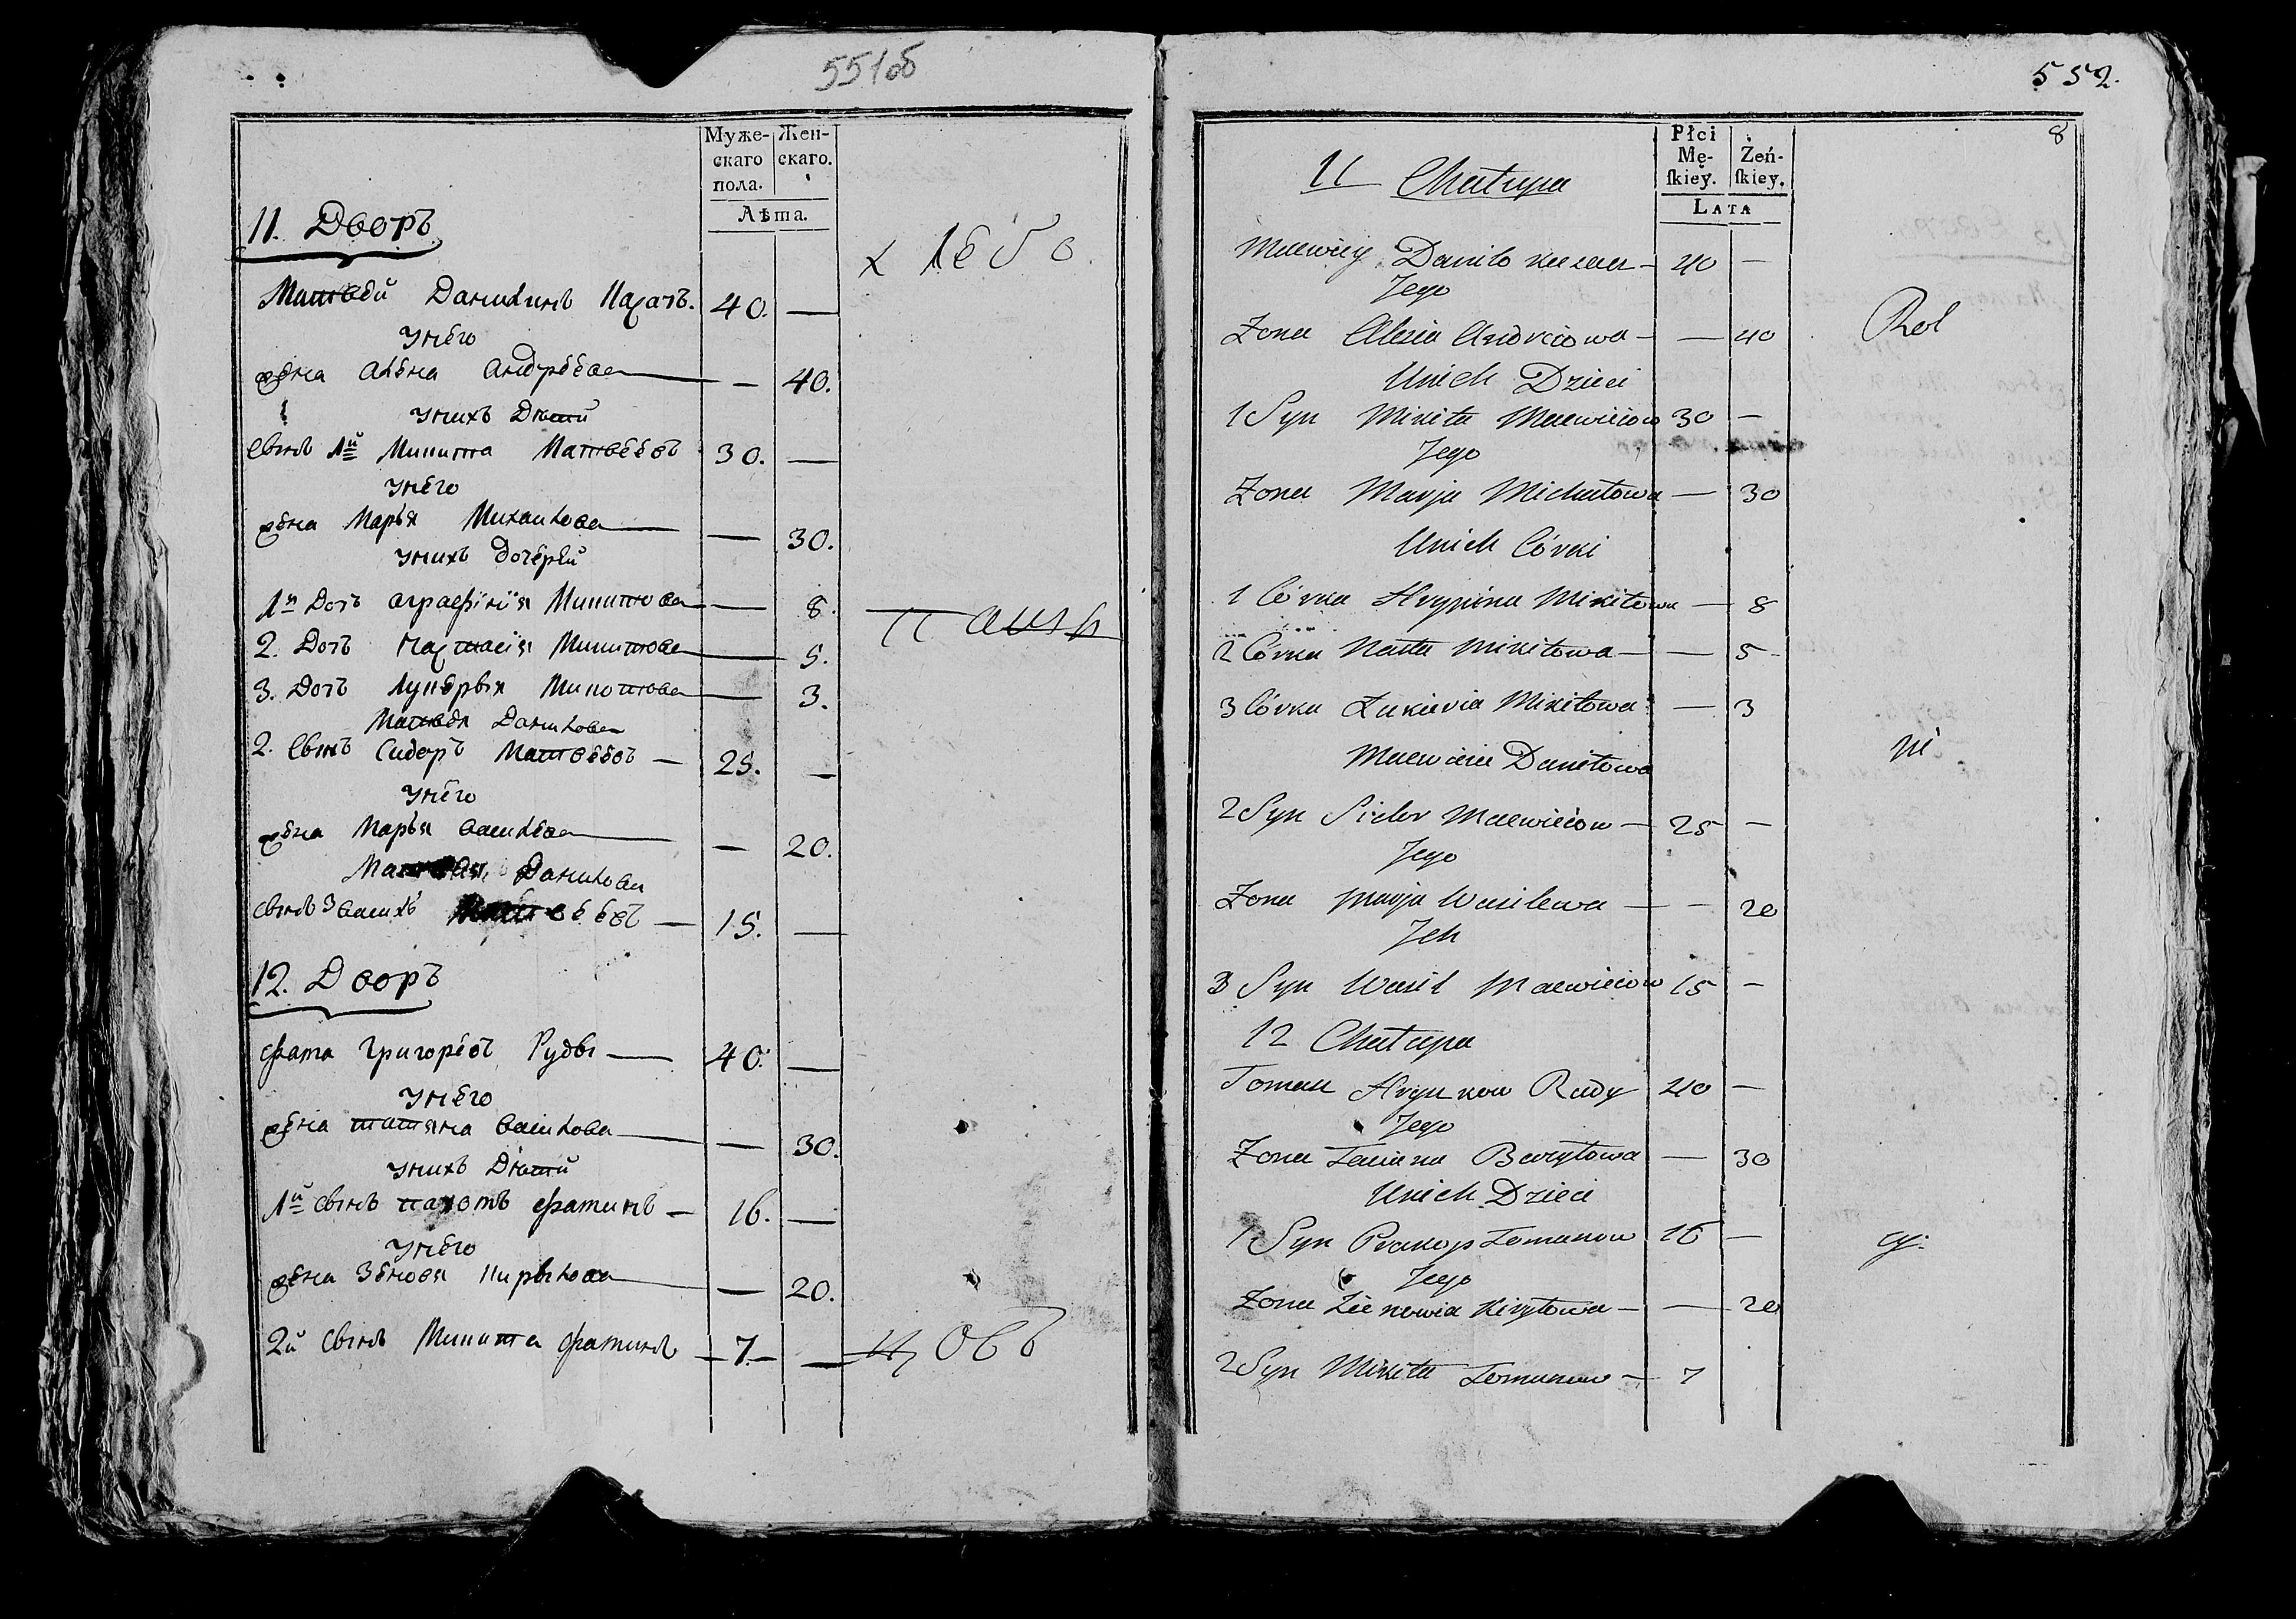 551об
Муже-
скаго
пола.
Жен-
скаго.
Лѣта.
11. Дворъ
х лебо
Матвей Данилинъ 40. —
Унего
жена Алена Андреева — 40.
Унихъ Дѣтй
Сынъ 1й Микита Матвеевъ 30. —
Унего
жена Марья Михаилова — 30.
Унихъ дочерей
1я Доч Аграфінія Микитова — 8.
пашъ
2. Доч Настасія Микитова — 5.
3. Доч Лукерья Микитова — 3.
Матвея Данилова
2. Сынъ Сидоръ Матвеевъ — 25. —
Унего
жена Марья Василева — 20.
Данилова
Сынъ 3 Василь Матвеевъ — 15. —
12. Дворъ
Фама Григоревъ Руды — 40. —
Унего
жена татяна — 30.
Унихъ Дѣтй
1й Сынъ Фаминъ — 16. —
Унего
жена Зеновя Кирылова — 20.
2й Сынъ Микита Фаминъ — 7. —
цовъ
552.
8
Płci
Mę-
skiey.
Żeń-
skiey.
LATA
11 Chałupa
Maewiey Daniło 40 —
Jego
Zona Alesia Andreiowa — — 40
Rol
Unich Dzieci
1 Syn Mikita Maewieiow 30 —
Jego
Zona Marja Michałowa — 30
Unich Córki
1 Córka Hrypina Mikitowa — 8
2 Córka Nasta Mikitowa — — 5
3 Córka Łukieria Mikitowa — 3
ni
Maewieia Daniłowa
2 Syn Sidor Maewieiow — 25 —
Jego
Zona Marja Wasilewa — — 20
Jch
3 Syn Wasil Maewieiow 15 —
12 Chałupa
Tomasz Hrynkow Rudy 40 —
Jego
Zona Taciana — 30
Unich Dzieci
1 Syn Prakop Tomanow 16 —
cy.
Jego
Zona Zienowia Kiryłowa — — 20
2 Syn Mikita Tomanow — 7